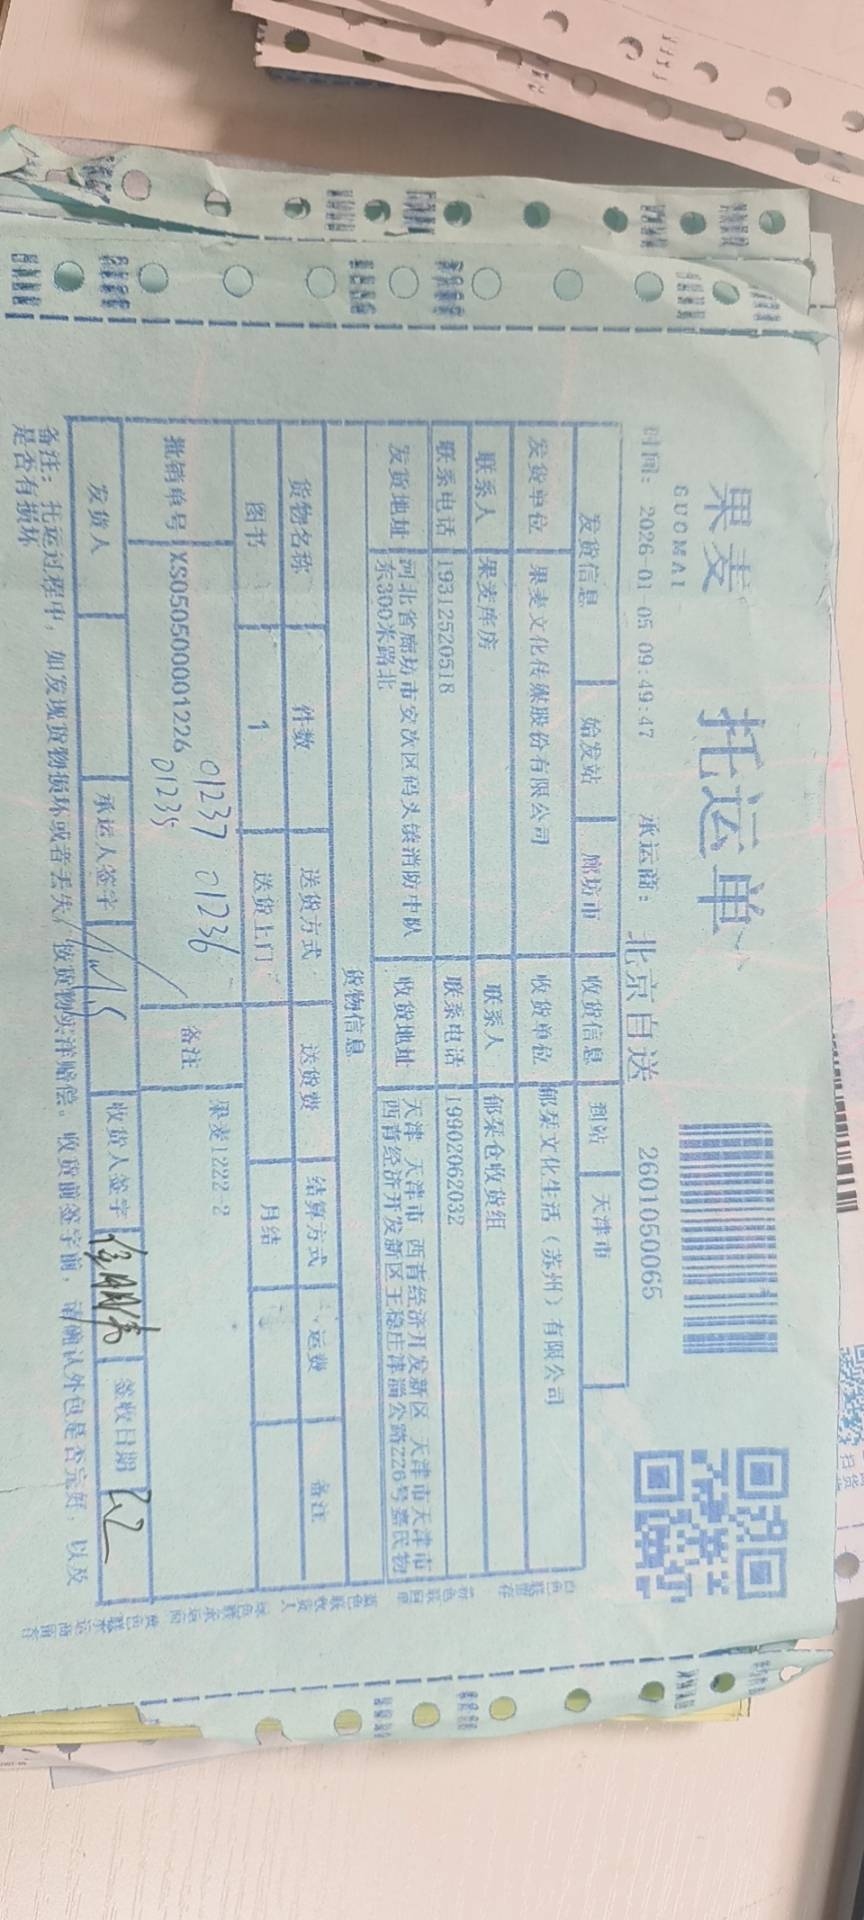 果麦
GUOMAI
托运单
时间: 2026-01-05 09:49:47
承运商: 北京自送
2601050065
发货信息 始发站 廊坊市 收货信息 到站 天津市
发货单位 果麦文化传媒股份有限公司 收货单位 郁栞文化生活（苏州）有限公司
联系人 果麦库房 联系人 郁栞仓收货组
联系电话 19312520518 联系电话 19902062032
发货地址 河北省廊坊市安次区码头镇消防中队东300米路北 收货地址 天津 天津市 西青经济开发新区 天津市天津市西青经济开发新区王稳庄津淄公路226号嘉民物
货物信息
货物名称 件数 送货方式 送货费 结算方式 运费 备注
图书 1 送货上门 月结
批销单号 XS050500001226 01237 01236 01235 备注 果麦1222-2
发货人 承运人签字 收货人签字 签收日期
备注: 托运过程中, 如发现货物损坏或者丢失, 按货物实洋赔偿。收货前签字前, 请确认外包是否完好, 以及
是否有损坏